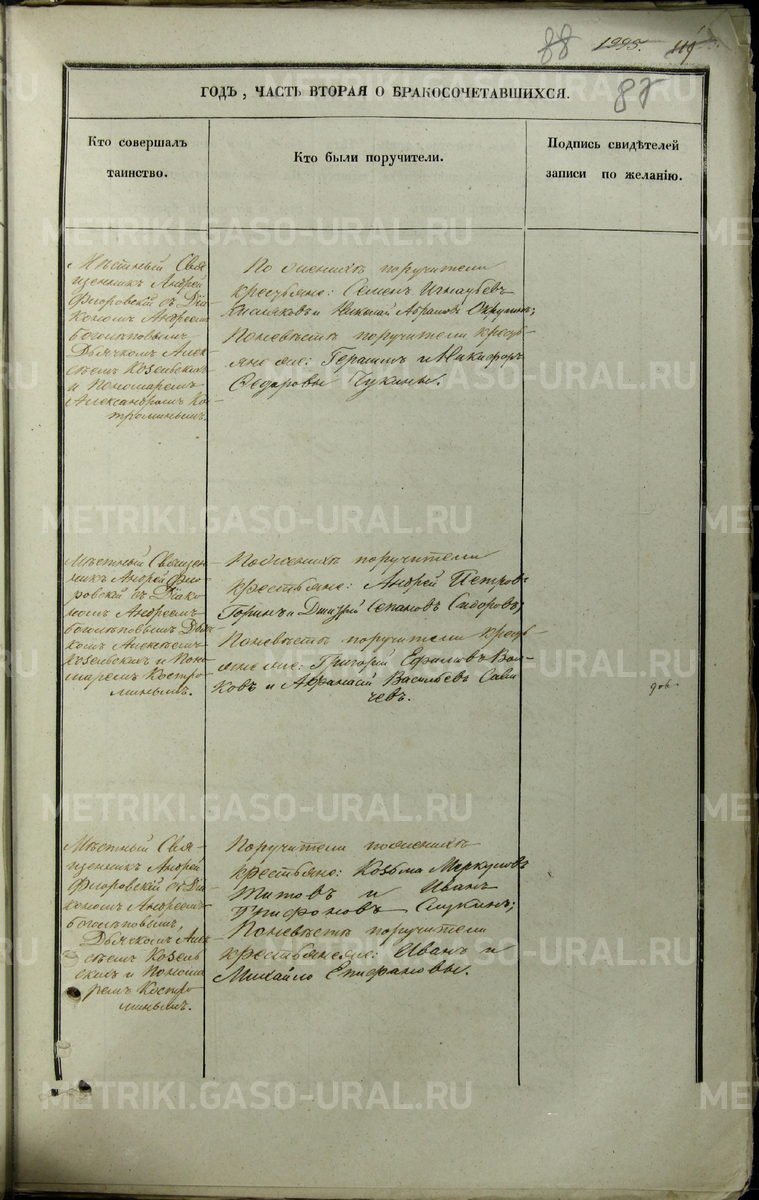 88 1225. 119
87
ГОДЪ, ЧАСТЬ ВТОРАЯ О БРАКОСОЧЕТАВШИХСЯ.
Кто совершалъ
таинство.
Кто были поручители.
Подпись свидѣтелей
записи по желанію.
METRIKI.GASO-URAL.RU
Мѣстный Свя-
щенникъ Андрей
Флоровскій съ Діа-
кономъ Андреемъ
Боголѣповымъ
Дьячкомъ Алек-
сѣемъ Козельскимъ
и Пономаремъ
Александромъ Ко-
строминымъ.
По женихѣ поручители
крестьяне: Семенъ Игнатьевъ
и Николай Абрамовъ
По невѣстѣ поручители кресть-
яне же: Герасимъ и Никифоръ
Ѳедоровы Чукины.
METRIKI.GASO-URAL.RU
Мѣстный Священ-
никъ Андрей Фло-
ровскій съ Діако-
номъ Андреемъ
Боголѣповымъ Дья-
комъ Алексѣемъ
Козельскимъ и Поно-
маремъ Костро-
минымъ.
По женихѣ поручители
крестьяне: Андрей Петровъ
Горинъ и Дмитрій Степановъ Сидоровъ;
По невѣстѣ поручители кресть-
яне же: Григорій Ефимовъ Вол-
ковъ и Афанасій Васильевъ Сави-
чевъ.
METRIKI.GASO-URAL.RU
METRIKI.GASO-URAL.RU
Мѣстный Свя-
щенникъ Андрей
Флоровскій съ Діа-
кономъ Андреемъ
Боголѣповымъ,
Дьячкомъ Алек-
сѣемъ Козель-
скимъ и Понома-
ремъ Костро-
минымъ.
Поручители по женихѣ
крестьяне: Козьма Меркуловъ
Титовъ и Иванъ
Трифоновъ
По невѣстѣ поручители
крестьяне же: Иванъ и
Михайло Епифановы.
METRIKI.GASO-URAL.RU
METRIKI.GASO-URAL.RU